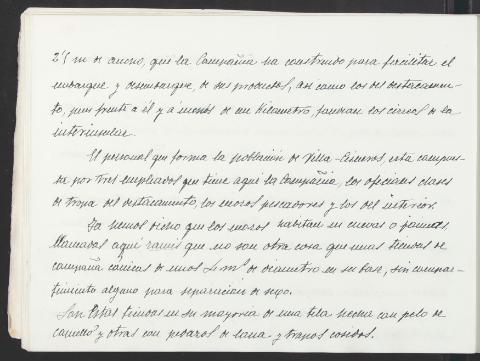 2'5 m de ancho, que la Compañia ha construido para facilitar el
embarque y desembarque, de sus productos, asi como los del destacamen-
to, pues frente á él y á menos de un Kilometro, fondean los correos de la
interinsular.
El personal que forma la población de Villa-Cisneros, está compues-
ta por tres empleados que tiene aqui la Compañia, los oficiales clases
de tropa del destacamento, los moros pescadores y los del interior.
Ya hemos dicho que los moros habitan en cuevas o jaimas,
llamadas aqui que no son otra cosa que unas tiendas de
campaña cónicas de unos 4 m^s de diametro en su base, sin compar-
timiento alguno para separacion de sexo.
Son estas tiendas en su mayoria de una tela hecha con pelo de
camello y otras con pedazos de lana y trapos cosidos.